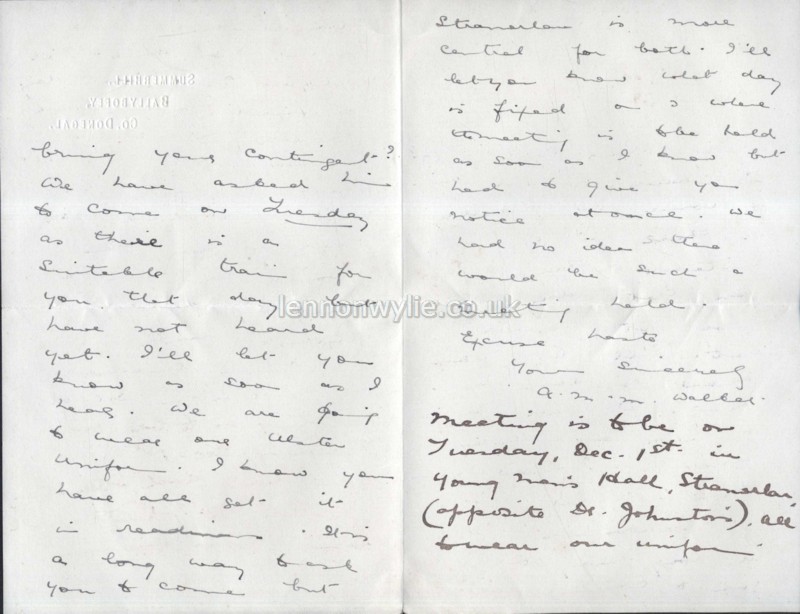 SUMMERHILL,
BALLYBOFEY,
CO. DONEGAL.
bring your contingent?
We have asked him
to come on Tuesday
as there is a
suitable train for
you that day but
have not heard
yet. I'll let you
know as soon as I
hear. We are going
to wear our Ulster
Uniform. I know you
have all got it
in readiness. It is
a long way to ask
you to come but
Stranorlar is more
central for both. I'll
let you know what day
is fixed on & where
the meeting is to be held
as soon as I know but
had to give you
notice at once. We
had no idea there
would be such a
meeting held.
Excuse haste
Yours Sincerely
A. M. M. Walker.
Meeting is to be on
Tuesday, Dec. 1st. in
Young Men's Hall, Stranorlar,
(opposite Dr. Johnston's). All
to wear our uniform
lennonwylie.co.uk